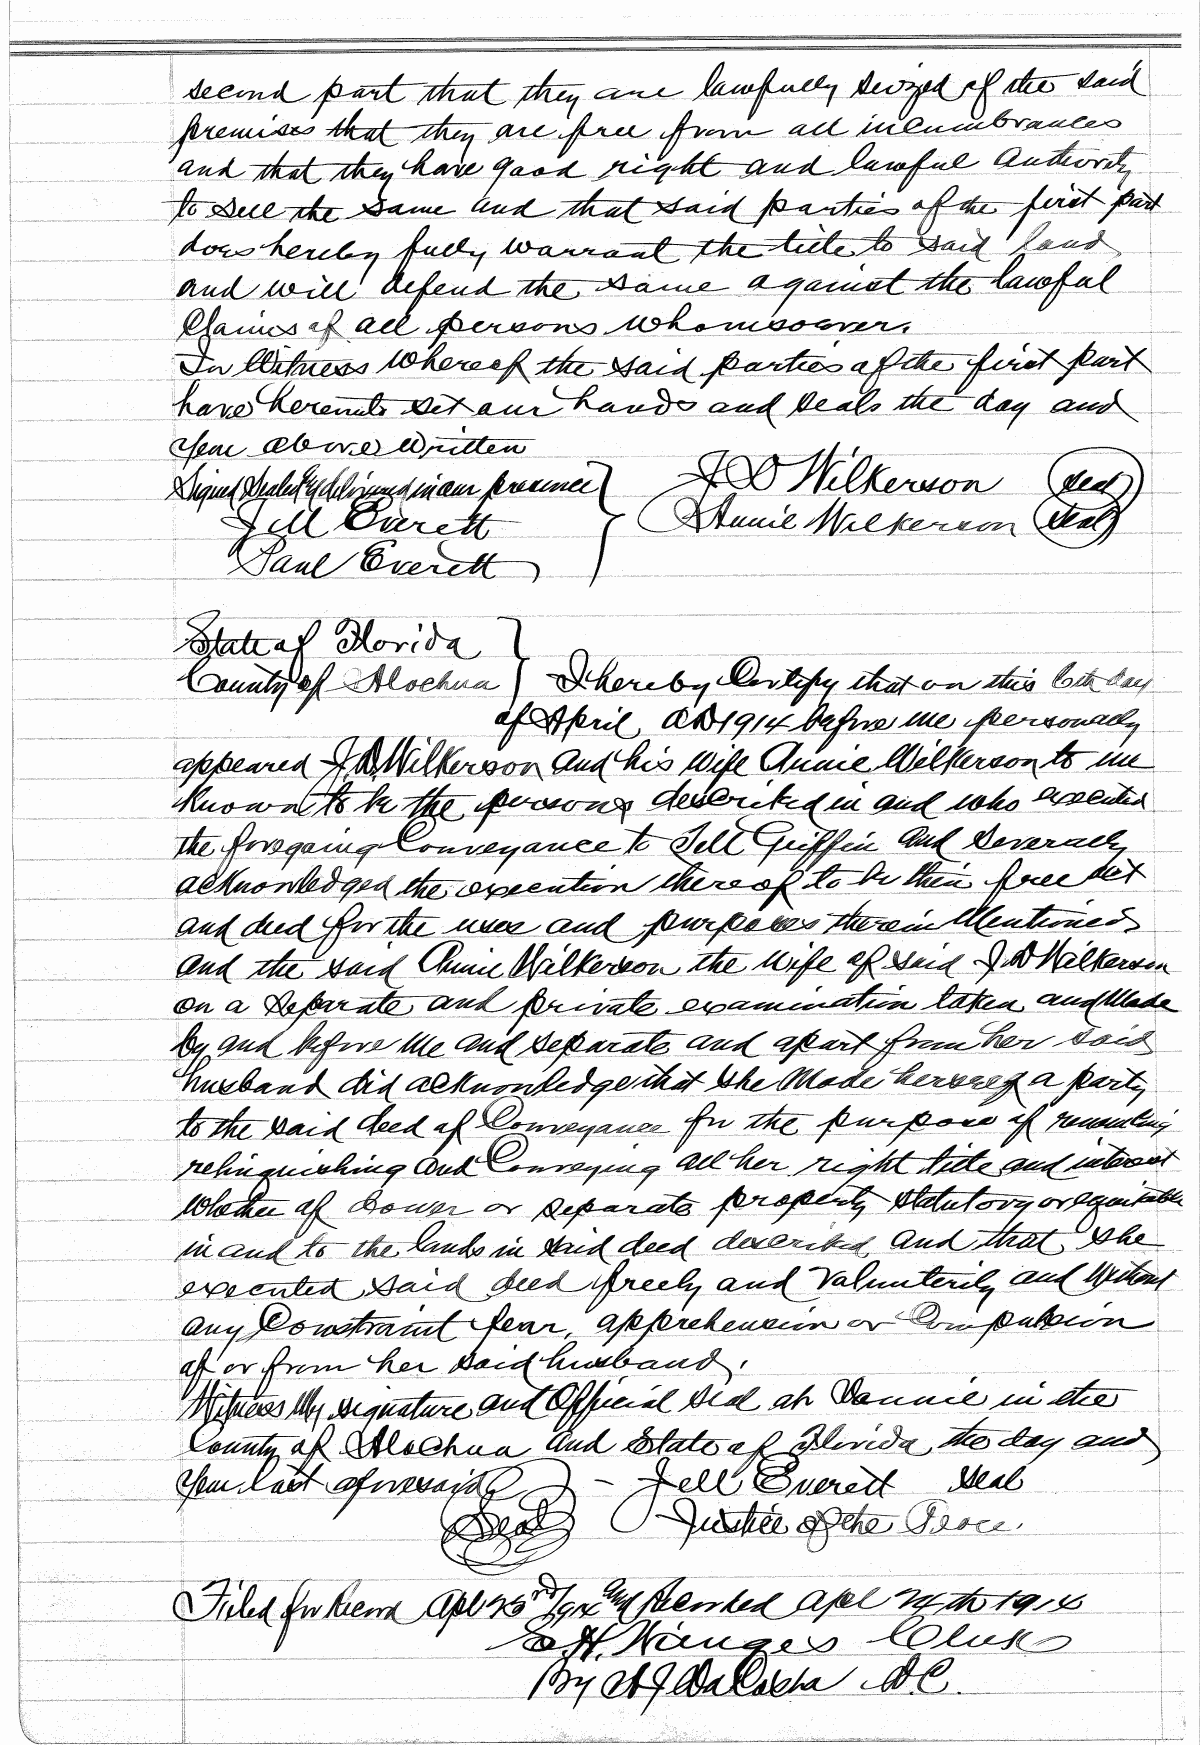 second part that they are lawfully seized of the said
premises that they are free from all incumbrances
and that they have good right and lawful authority
to sell the same and that said parties of the first part
does hereby fully warrant the title to said land
and will defend the same against the lawful
Claims of all persons whomsoever.
In Witness Whereof the said parties of the first part
have hereunto set our hands and seals the day and
year above written
Signed Sealed & delivered in our presence } J D Wilkerson (seal)
Everett } Annie Wilkerson (seal)
Paul Everett
State of Florida }
County of Alachua } I hereby Certify that on this 6th day
of April AD 1914 before me personally
appeared J D Wilkerson and his wife Annie Wilkerson to me
known to be the persons described in and who executed
the foregoing Conveyance to Griffin and severally
acknowledged the execution thereof to be their free act
and deed for the uses and purposes therein Mentioned
and the said Annie Wilkerson the wife of said J D Wilkerson
on a separate and private examination taken and Made
by and before me and separate and apart from her said
husband did acknowledge that she Made herself a party
to the said deed of Conveyance for the purpose of renouncing
relinquishing and Conveying all her right title and interest
Whether of dower or separate property statutory or equitable
in and to the lands in said deed described and that she
executed said deed freely and Valunterily and Without
any Constraint fear, apprehension or Compulsion
of or from her said husband.
Witness My signature and Official seal at in the
County of Alachua and State of Florida the day and
year last aforesaid } - Jell Everett seal
(Seal) Justice of the Peace.
Filed for Record Apl 23rd 1914 and Recorded Apl 24th 1914
S. H. Wienges Clerk
By DaCosta D.C.